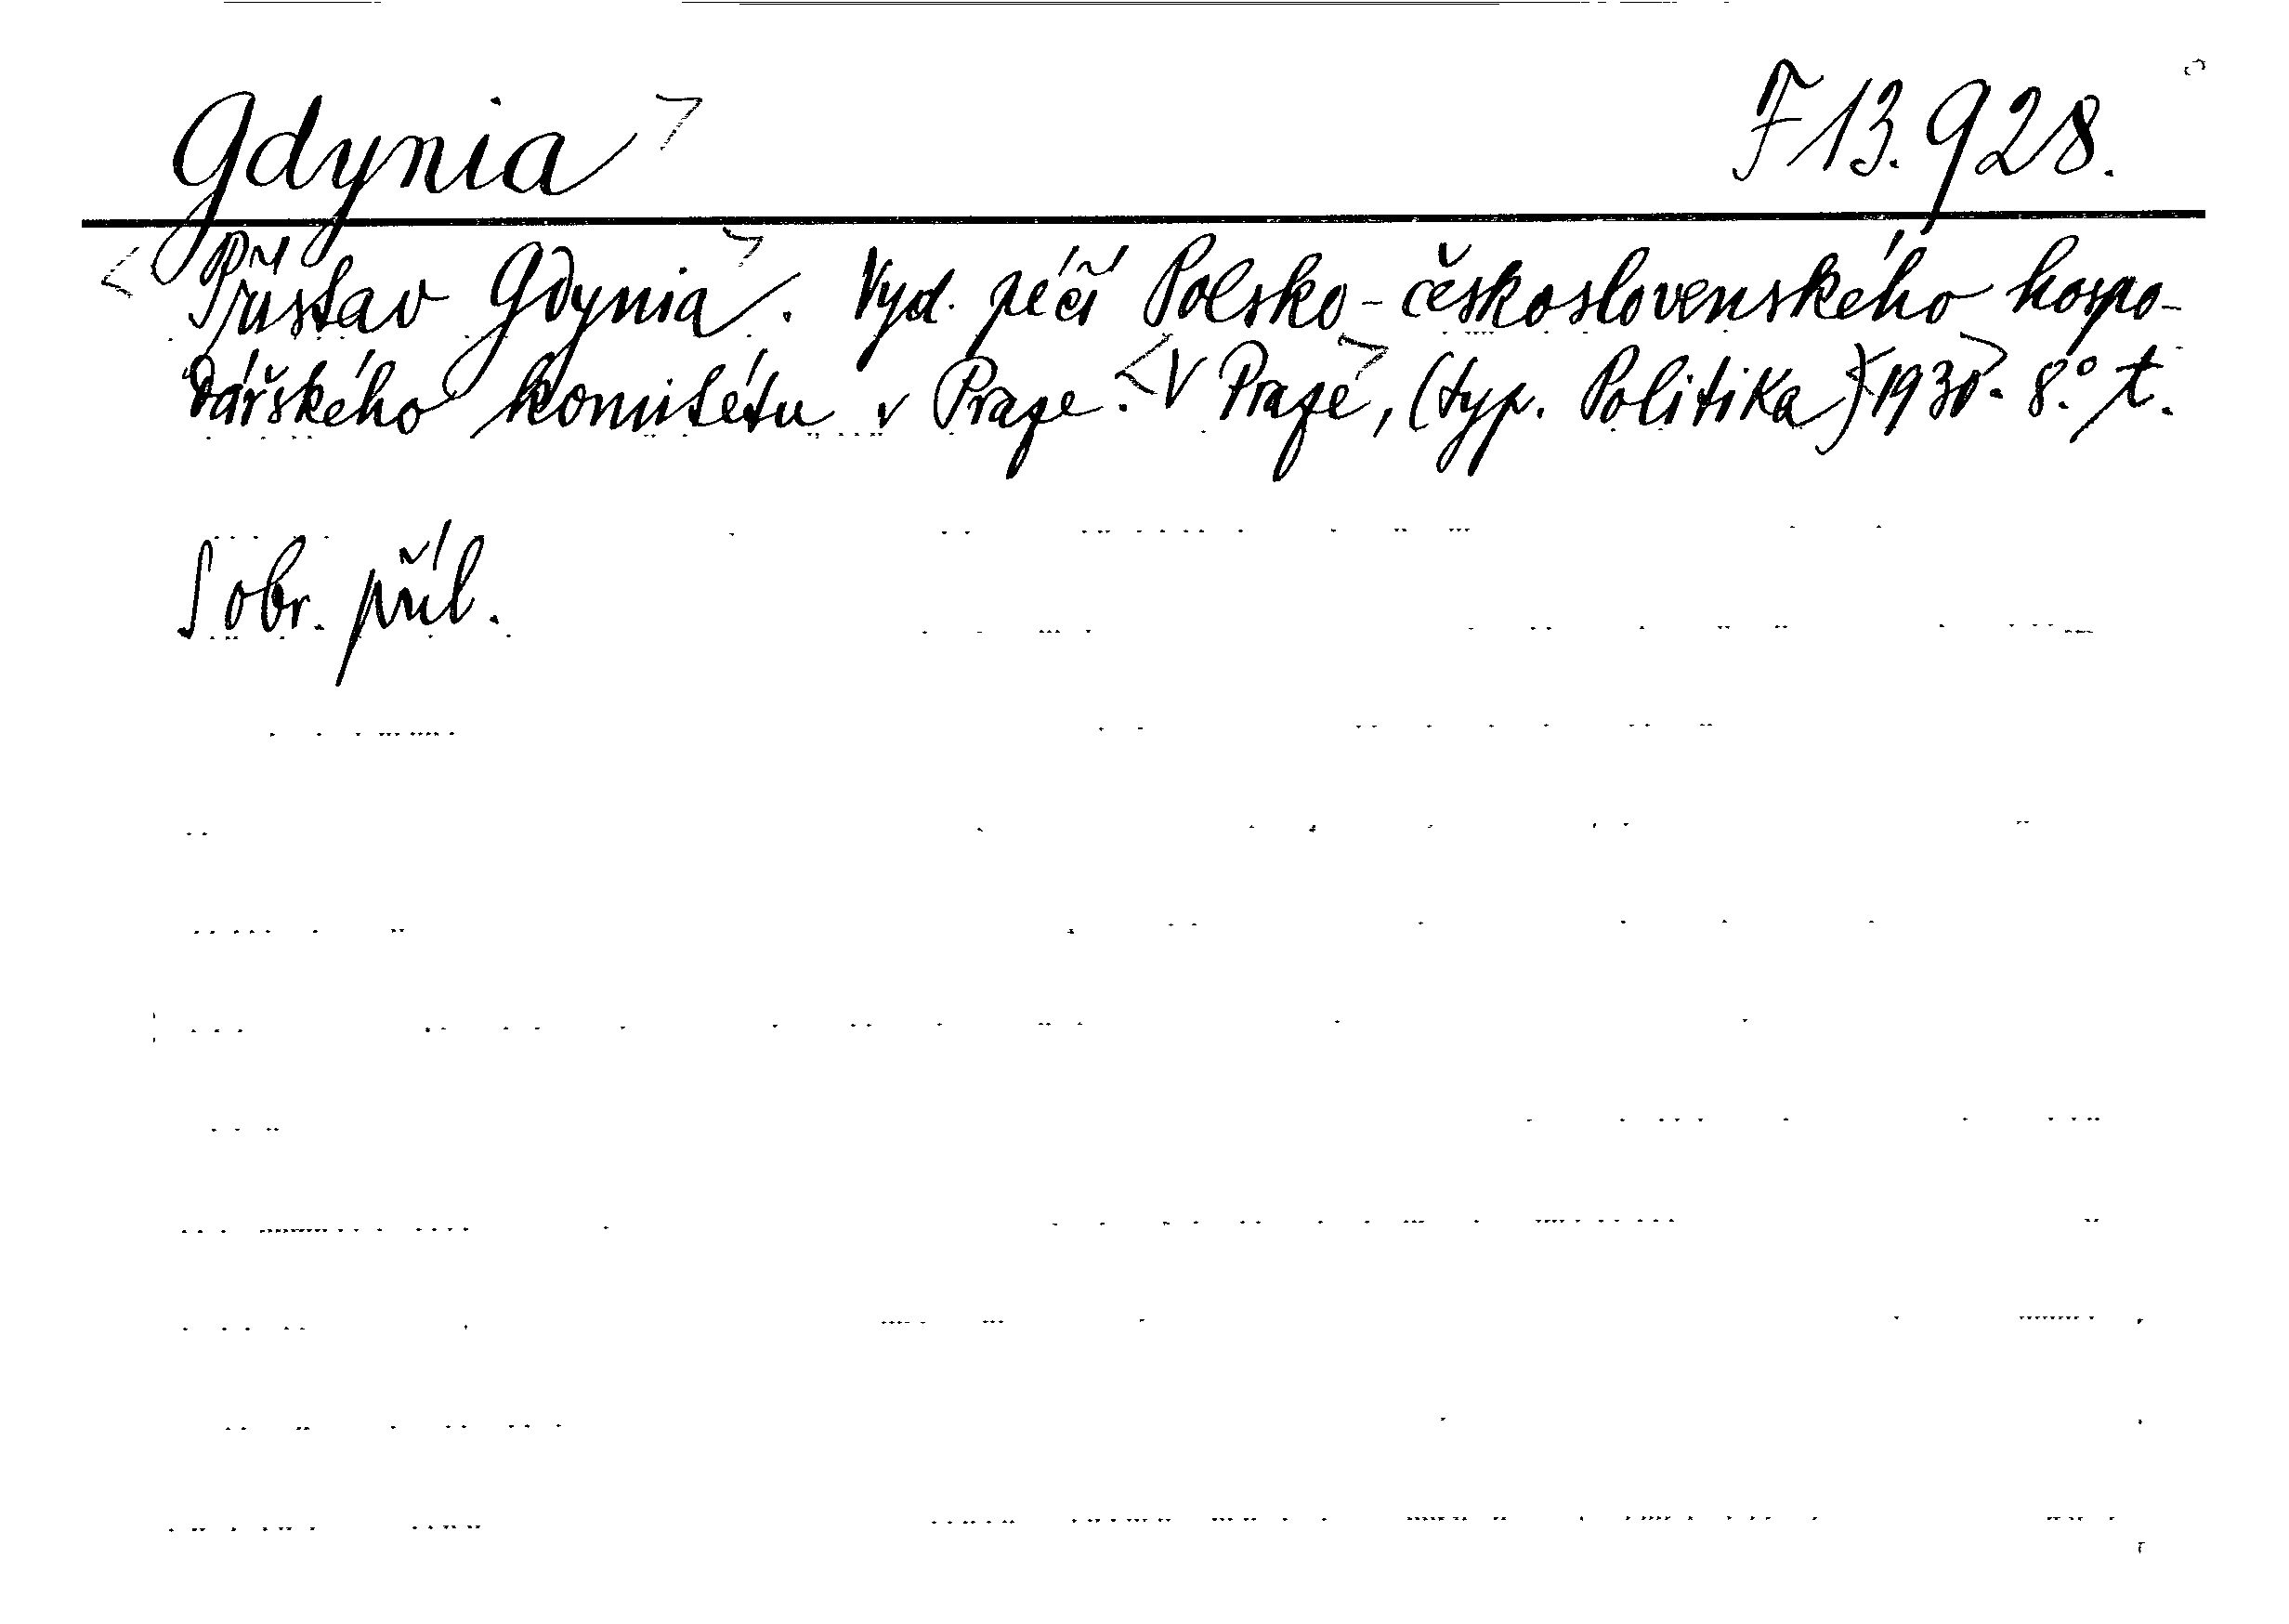 Gdynia F 13.928.
Přístav Gdynia. Vyd. péčí Polsko-československého hospo-
dářského komitétu v Praze. V Praze, (typ. Politika) 1930. 8.° t.
S obr. příl.